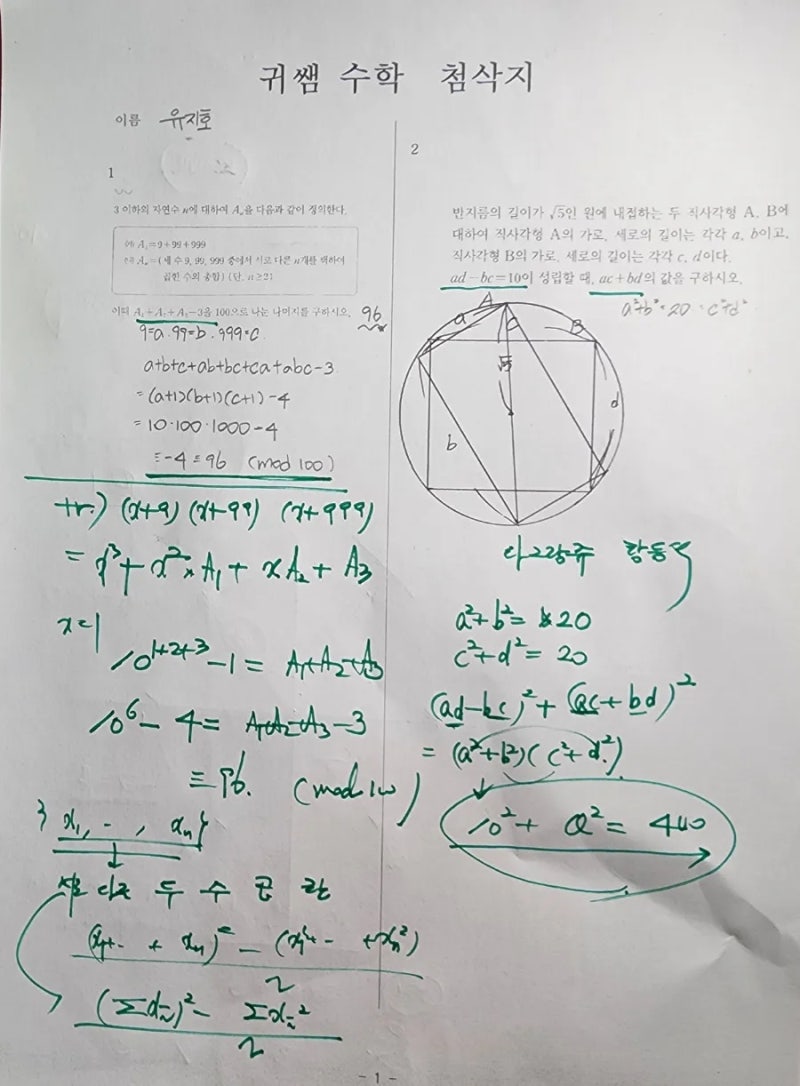 귀쌤 수학 첨삭지
이름 유지호
1
3 이하의 자연수 n에 대하여 Aₙ을 다음과 같이 정의한다.
(가) A₁=9+99+999
(나) Aₙ=(세 수 9, 99, 999 중에서 서로 다른 n개를 택하여
곱한 수의 총합) (단, n≥2)
이때 A₁+A₂+A₃-3을 100으로 나눈 나머지를 구하시오. 96
9=a. 99=b. 999=c.
a+b+c+ab+bc+ca+abc-3
=(a+1)(b+1)(c+1)-4
=10·100·1000-4
≡-4≡96 (mod 100)
(x+9) (x+99) (x+999)
= x³+ x²×A₁ + xA₂ + A₃
x=1
10¹⁺²⁺³-1 = A₁+A₂+A₃
10⁶- 4 = A₁+A₂+A₃-3
≡ 96. (mod 100)
{ x₁, -, xₙ }
서로 다른 두 수 곱 합
(x₁+- + xₙ)² - (x₁²+- +xₙ²)
2
(Σxᵢ)² - Σxᵢ²
2
2
반지름의 길이가 √5인 원에 내접하는 두 직사각형 A, B에
대하여 직사각형 A의 가로, 세로의 길이는 각각 a, b이고,
직사각형 B의 가로, 세로의 길이는 각각 c, d이다.
ad-bc=10이 성립할 때, ac+bd의 값을 구하시오.
a²+b²=20=c²+d²
A
a
c
B
√5
d
b
항등식
a²+b²= 20
c²+d²= 20
(ad-bc)²+(ac+bd)²
= (a²+b²)(c²+d²)
10²+ Q²= 400
- 1 -